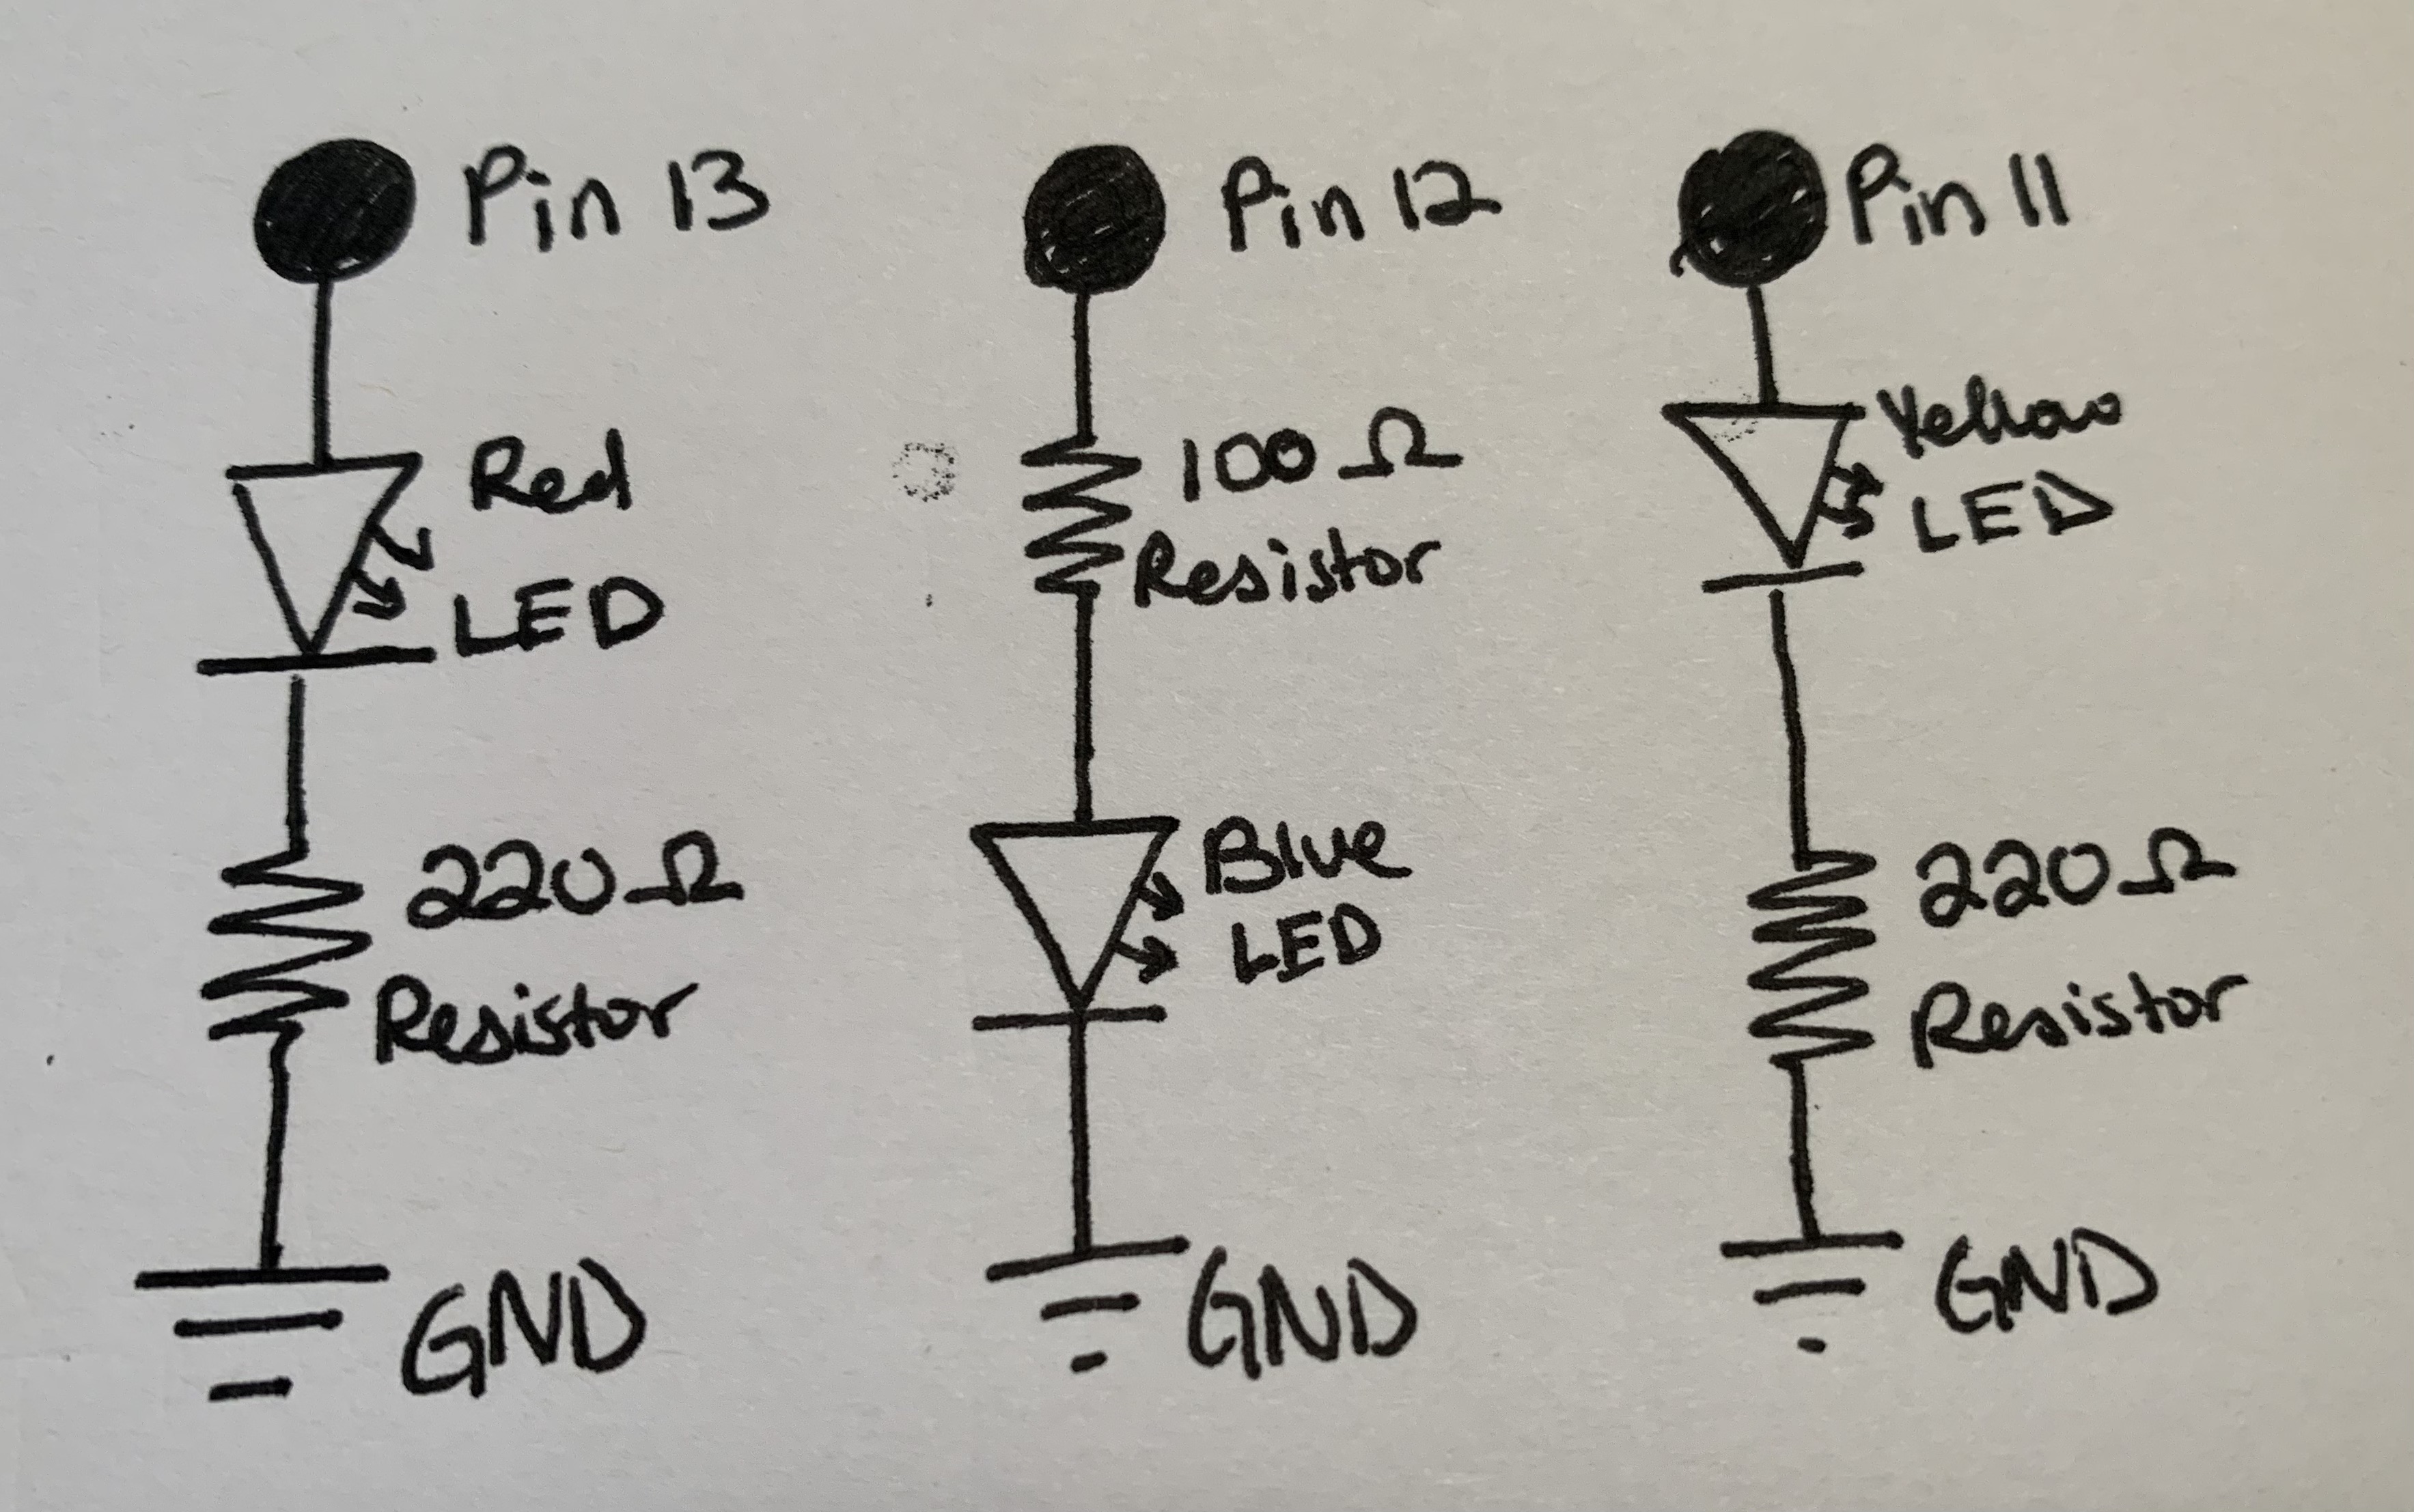 Pin 13
Red
LED
220 Ω
Resistor
GND
Pin 12
100 Ω
Resistor
Blue
LED
GND
Pin 11
Yellow
LED
220 Ω
Resistor
GND